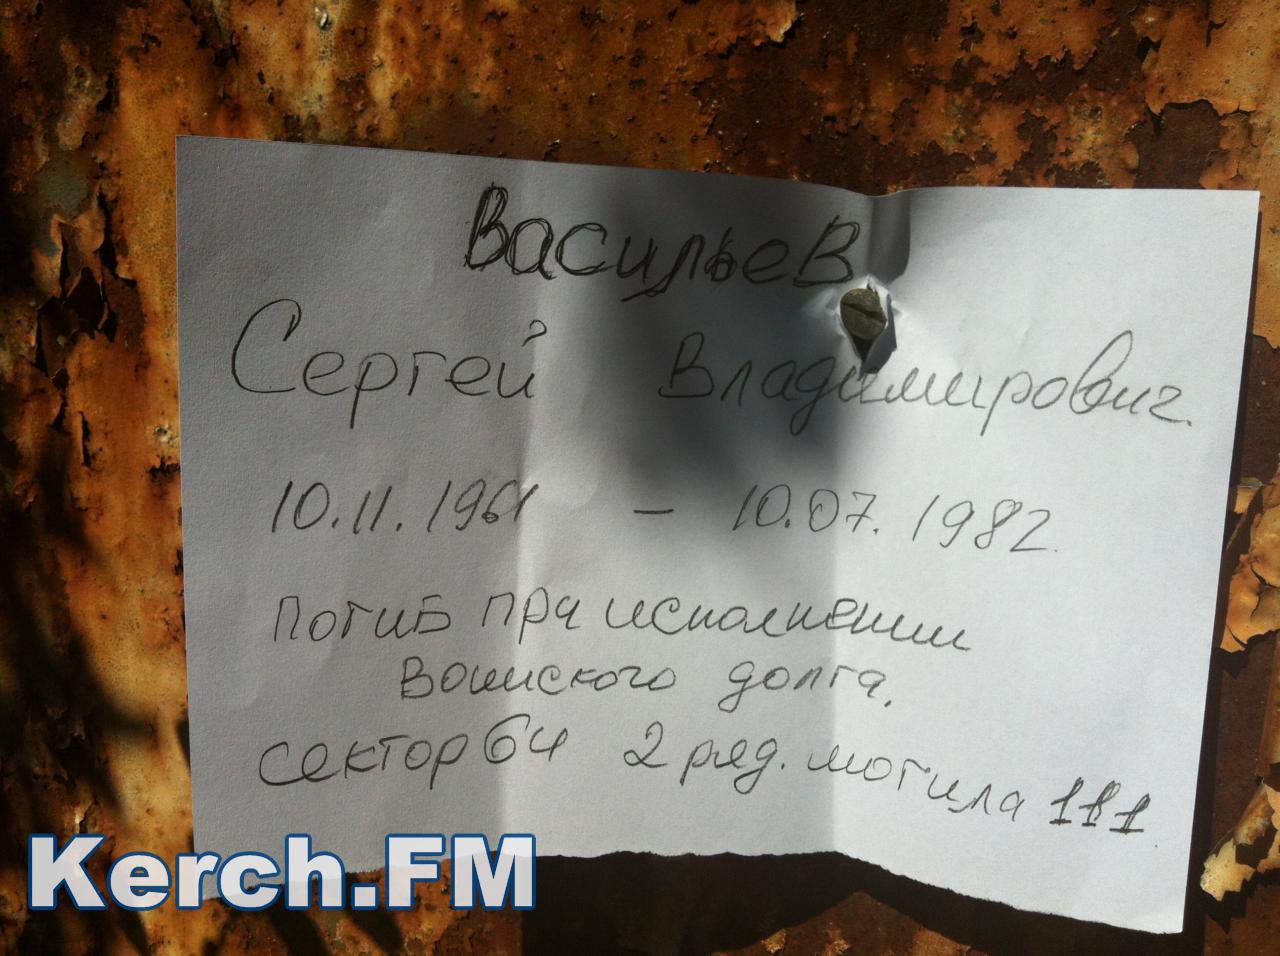 Васильев
Сергей Владимирович.
10.11.1961 – 10.07.1982.
Погиб при исполнении
воинского долга.
сектор 64 2 ряд. могила 111
Kerch.FM